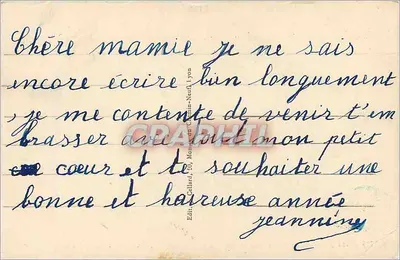 Chère mamie je ne sais
encore écrire bien longuement
, je me contente de venir t'em
brasser avec tout mon petit
coeur et te souhaiter une
bonne et haireuse année
jeannine
CRAPHT!